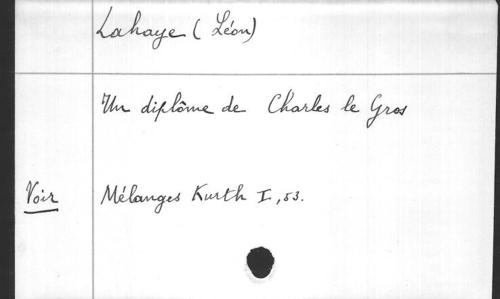 Lahaye (Léon)
Un diplôme de Charles le Gros
Voir Mélanges Kurth I, 53.